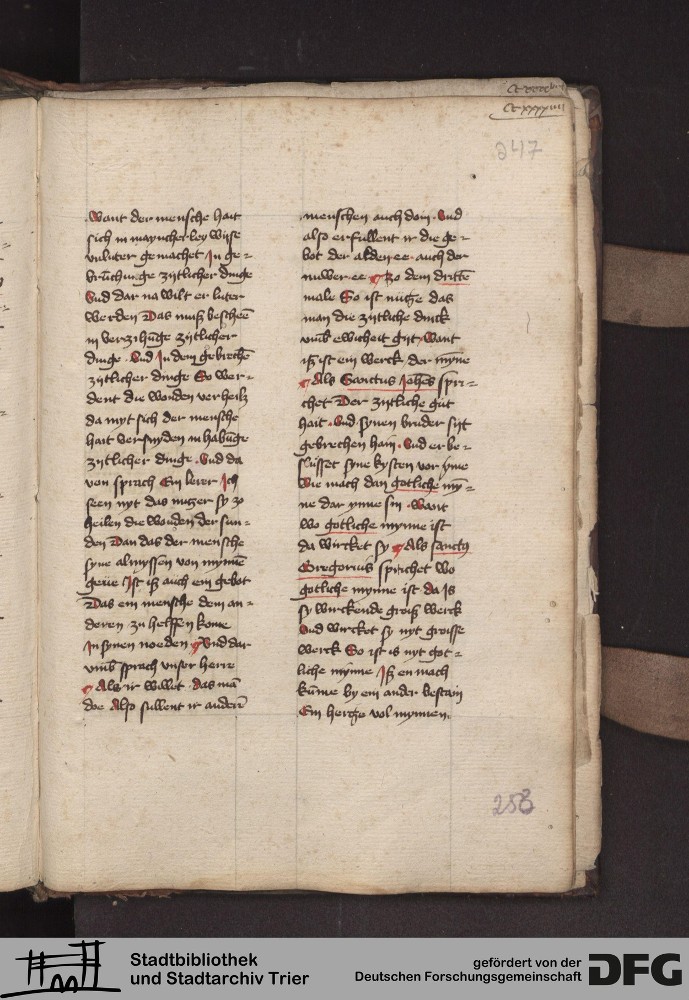 Cc xxxxiiii
247
Want der mensche hait
sich in mancherley wijse
vnluter gemachet Jn ge=
bruchunge zijtlicher dinge
Vnd dar na wilt er luter
werden Das muß bescheen
in verzihunge zijtlicher
dinge . Vnd Jn dem gebrechen
zijtlicher dinge So wer=
dent die wonden verheilt
da myt sich der mensche
hait versnyden in habunge
zijtlicher dinge . Vnd da
von sprach Ein lerer Jch
seen nyt das nutzer sy zo
heilen die wonden der sun=
den Dan das der mensche
syne almyssen von mynnen
gerne Jst iß auch ein gebot
Das ein mensche dem an=
deren zu helffen kome
Jn synen noeden Vnd dar
vmb sprach vnser herre
Als ir wollet das man
doe Also sullent ir anderen
menschen auch doin . Vnd
also erfullent ir die ge=
bot der alden ee auch der
nuwer ee Zo dem dritten
male So ist nutze das
man die zijtliche dinck
vmb ewicheit gijt Want
iß ist ein werck der mynne
Als Sanctus Johannes spri=
chet Der zijtliche gut
hait . Vnd synen bruder sijt
gebrechen hain . Vnd er be=
slusset syne kysten vor yme
Wie mach dan gotliche myn=
ne dar ynne sin . Want
wo gotliche mynne ist
da wircket sy Als sanctus
Gregorius sprichet wo
gotliche mynne ist da Is
sy wirckende groiß werck
Vnd wircket sy nyt groisse
werck So ist is nyt got=
liche mynne Jß en mach
kume by ein ander bestain
Ein hertze vol mynnen.
258
Stadtbibliothek
und Stadtarchiv Trier
gefördert von der
Deutschen Forschungsgemeinschaft
DFG